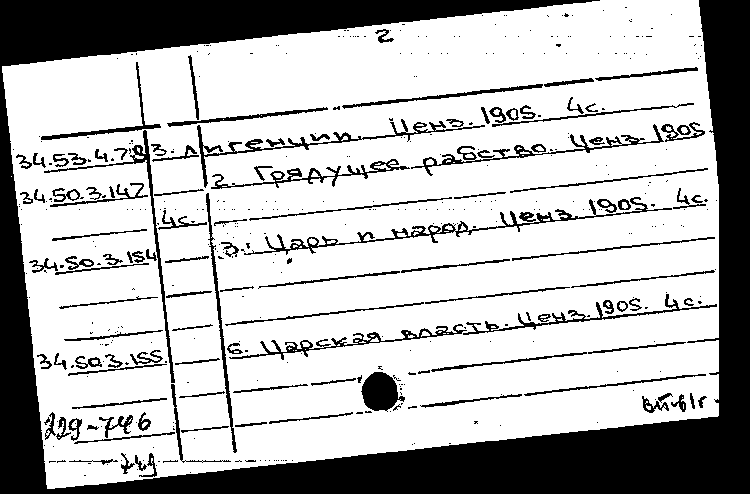 2
34.53.4.783. лигенции. Ценз. 1905. 4с.
34.50.3.147 2. Грядущее рабство. Ценз. 1905.
4с.
34.50.3.154 3. Царь и народ. Ценз. 1905. 4с.
34.50.3.155 6. Царская власть. Ценз. 1905. 4с.
229-746
749